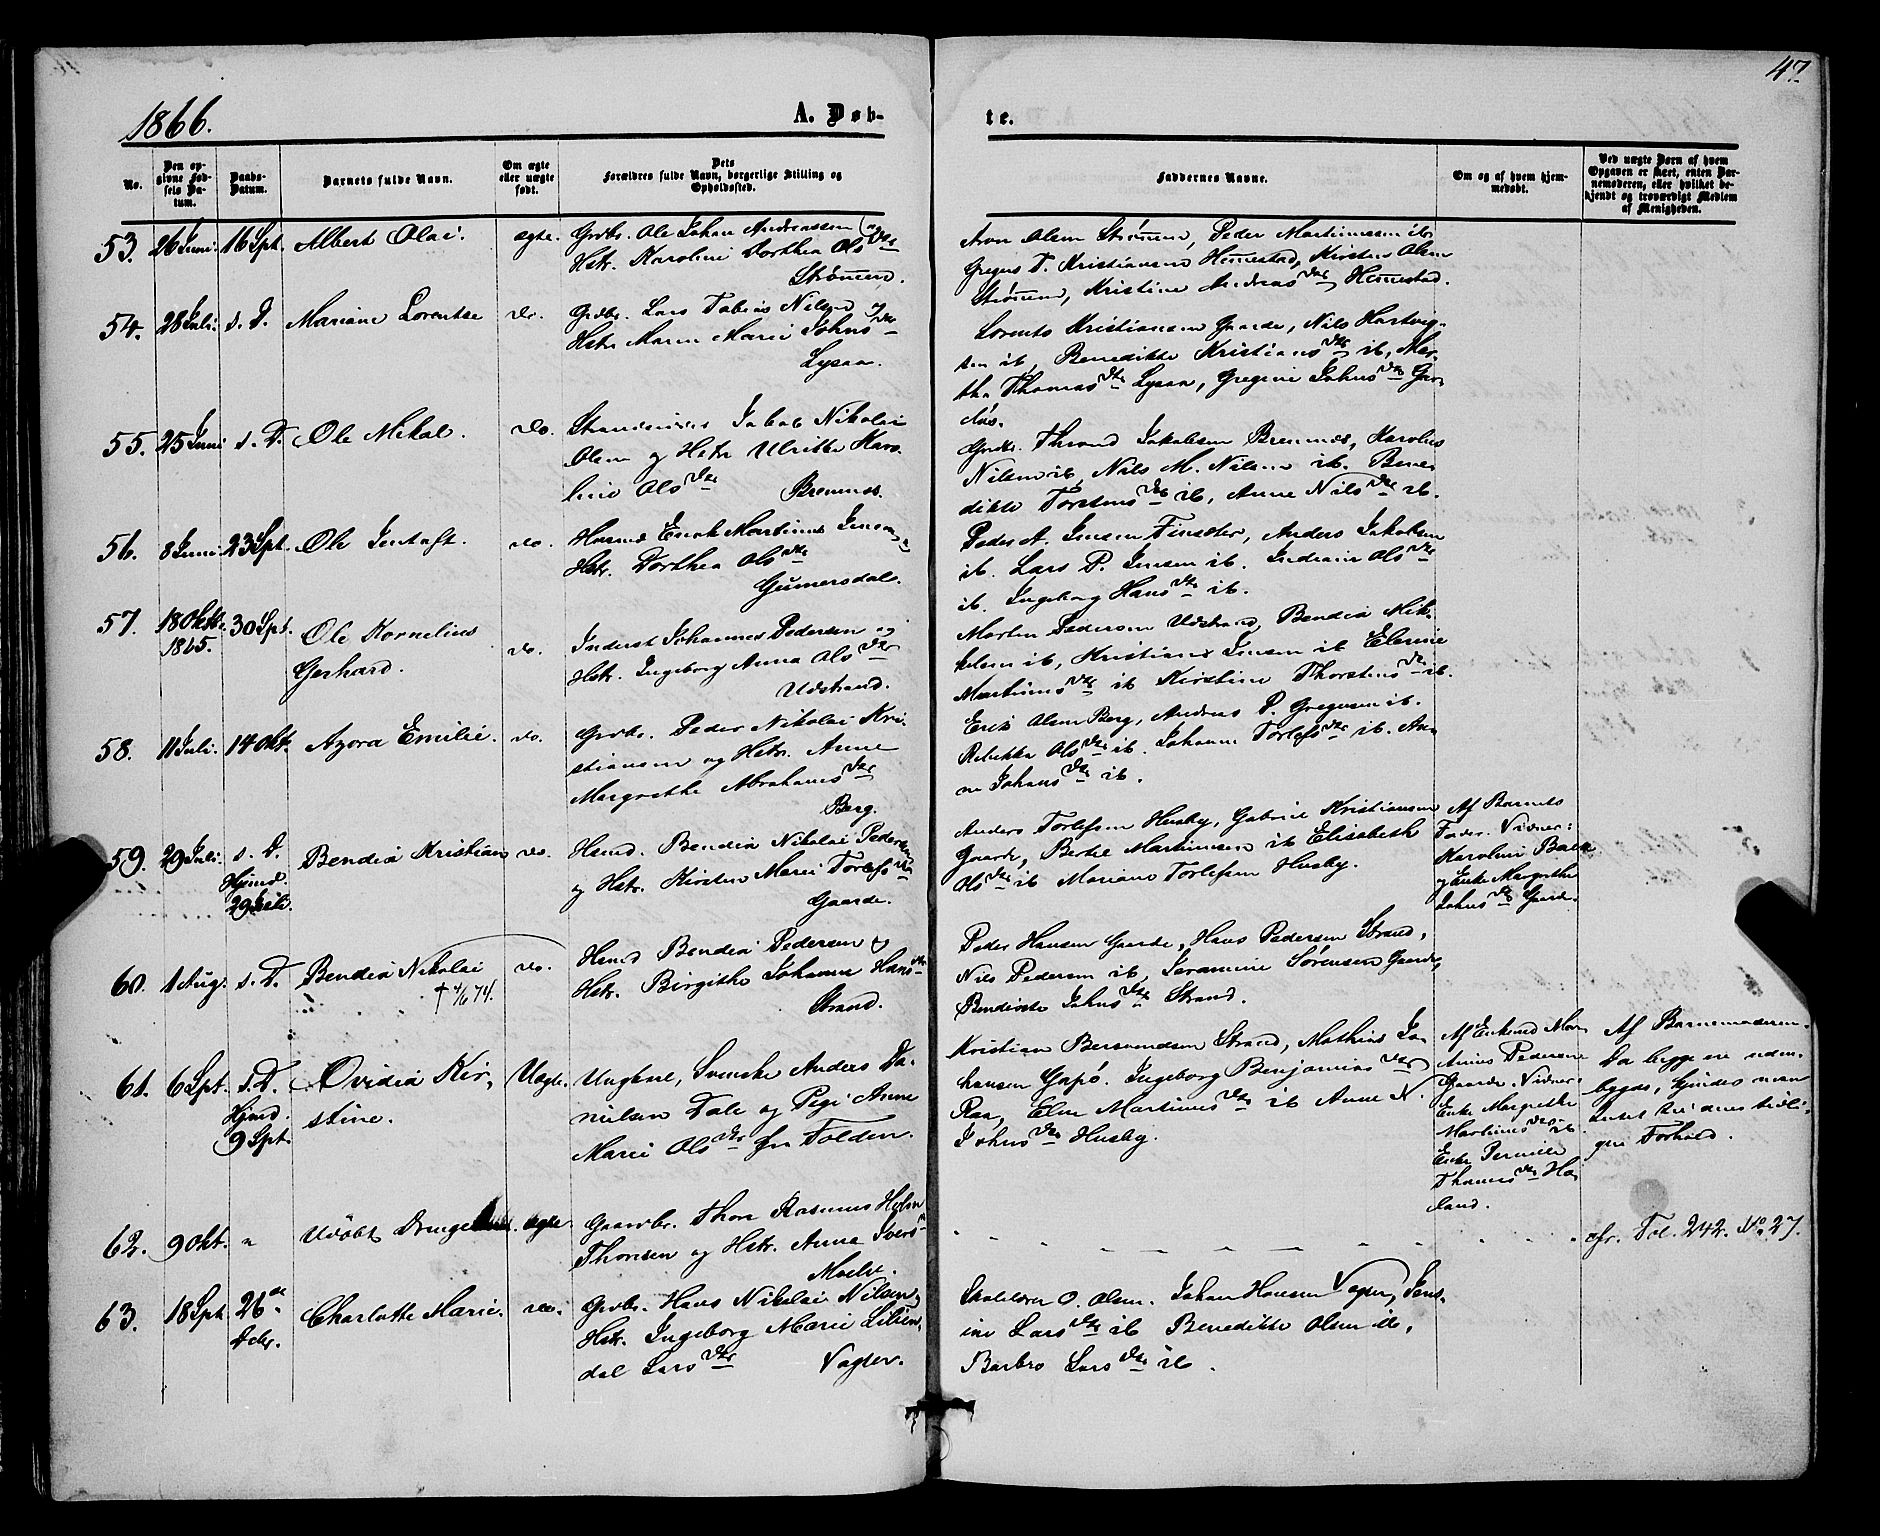 47.
1866.
A. Døb-
te.
No.
Den op-
givne Fød-
sels Da-
tum.
Daabs-
Datum.
Barnets fulde Navn.
Om ægte
eller uægte
født.
Dets
Forældres fulde Navn, borgerlige Stilling og
Opholdssted.
Faddernes Navne.
Om og af hvem hjem-
medøbt.
Ved uægte Børn af hvem
Opgaven er skeet, enten Bar-
nemoderen, eller hvilket be-
kjendt og troværdigt Medlem
af Menigheden.
53. 26 Juni. 16 Spt. Albert Olai. ægte. Grdbr. Ole Johan Andreassen og
Hstr. Karoline Dorthea Olsdtr
Strømmen.
Aron Olsen Strømmen, Peder Martinussen ib
Gregus T. Kristiansen Hemestad, Kirsten Olsen
Strømmen, Kristine Andreasdtr Hemestad.
54. 28 Juli. s. D. Mariane Lorentse do. Grdbr. Lars Tobias Nilsen og
Hstr Maren Marie Johnsdtr
Lysaa.
Lorents Kristiansen Gaarde, Nils Hartvig-
sen ib, Benedikte Kristiansdtr ib, Mar-
tha Thomasdtr Lysaa, Gregine Johnsdtr
55. 25 Juni s. D. Ole Mikal. do. Jakob Nikolai
Olsen og Hstr Ulrikke Karo-
line Olsdtr Bremnes.
Grdbr. Thrond Jakobsen Bremnes, Karolus
Nilsen ib, Nils M. Nilsen ib. Bene-
dikte Torstensdtr ib, Anne Nilsdtr ib.
56. 8 Juni 23 Spt. Ole Jentoft. do. Husmd Enok Martinus Jensen og
Hstr. Dorthea Olsdtr
Gumersdal.
Peder A. Jensen Finsæter, Anders Jakobsen
ib. Lars P. Jensen ib. Indiane Olsdtr
ib. Ingeborg Hansdtr ib.
57. 18 Oktbr. 1865. 30 Spt. Ole Kornelius
Gerhard. do. Inderst Johannes Pedersen og
Hstr. Ingeborg Anna Olsdtr
Udstrand.
Morten Pedersen Udstrand, Bendix Mik-
kelsen ib, Kristian Jensen ib Elenne
Martinusdtr ib Kirstine Thorstensdtr ib.
58. 11 Juli. 14 Okt. Azora Emilie. do. Grdbr. Peder Nikolai Kri-
stiansen og Hstr. Anne
Margrethe Abrahamsdtr
Berg.
Erik Olsen Berg, Andreas P. Gregusen ib.
Rebekka Olsdtr ib. Johanne Torlefsdtr ib. An-
ne Johansdtr ib.
59. 29 Juli. s. D.
Hjmd.
29 Juli. Bendix Kristian do. Hsmd. Bendix Nikolai Pedersen
og Hstr. Kirsten Marie Torlefsdtr
Gaarde.
Anders Torlefsen Husby, Gabriel Kristiansen
Gaarde, Bertel Martinussen ib Elisabeth
Olsdtr ib Mariane Torlefsen Husby.
Af Barnets
Fader. Vidner:
Karoline
og Enke Margrethe
Johnsdtr Gaarde.
60. 1 Aug. s. D. Bendix Nikolai
† 4/6 74. do. Hsmd Bendix Pedersen og
Hstr. Birgithe Johanne Hansdtr
Strand.
Peder Hansen Gaarde, Hans Pedersen Strand,
Nils Pedersen ib, Seramine Sørensen Gaarde,
Bendikte Johnsdtr Strand.
61. 6 Spt. s. D.
Hjmd.
9 Spt. Ovidia Kir-
stine. Uægte. Ungkne, Svenske Anders Da-
nielsen Dale og Pige Anne
Marie Olsdtr fra Folden.
Kristian Bersvendsen Strand, Mathias Jo-
hansen Gapø. Ingeborg Benjaminsdtr
Raa, Elen Martinusdtr ib Anne N.
Johnsdtr Husby.
Af Enkemd Mar-
tinus Pedersen
Gaarde. Vidner:
Enke Margrethe
Martinusdtr ib
Enke Pernille
Thomsdtr Ha-
land.
Af Barnemoderen.
Da begge ere uden-
bygds, kjendes man
intet til deres tidli-
gere Forhold.
62. 9 Okt. " Udøbt Drengebarn. ægte. Gaardbr. Thore Rasmus Holm
Thomsen og Hstr. Anna Iversdtr
Moelv.
cfr. Fol. 242. No 27.
63. 18 Spt 26de
Debr. Charlotte Marie. do. Grdbr. Hans Nikolai Nilsen og
Hstr. Ingeborg Marie Lilien-
dal Larsdtr Vagter.
Skolelærer O. Olsen. Johan Hansen Vagter, Jens-
ine Larsdtr ib Benedikte Olsen ib,
Barbro Larsdtr ib.